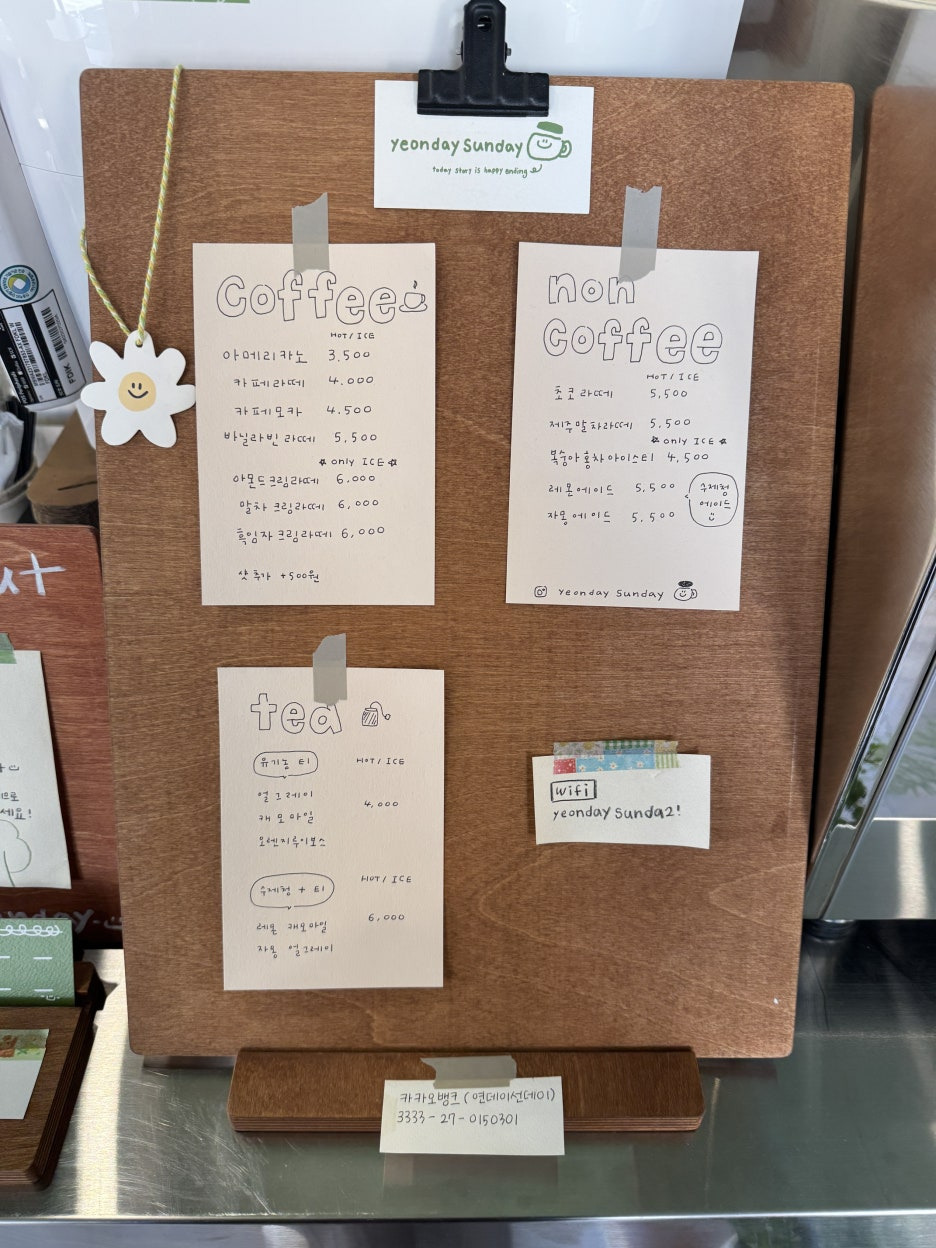 yeonday Sunday
today story is happy ending
Coffee
HOT/ICE
아메리카노 3.500
카페라떼 4.000
카페모카 4.500
바닐라빈라떼 5,500
only ICE
아몬드크림라떼 6.000
말차크림라떼 6,000
흑임자크림라떼 6,000
샷추가 +500원
non
Coffee
HOT/ICE
초코라떼 5,500
제주말차라떼 5,500
only ICE
복숭아홍차아이스티 4,500
레몬에이드 5.500
자몽에이드 5,500
수제청
에이드
yeonday Sunday
tea
유기농 티 HOT/ICE
얼그레이
캐모마일 4,000
오렌지루이보스
수제청 + 티 HOT/ICE
레몬 캐모마일 6,000
자몽 얼그레이
wifi
yeonday sunda2!
카카오뱅크 (연데이선데이)
3333-27-0150301